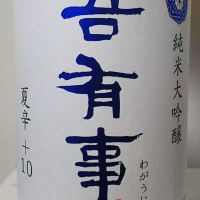 純米大吟醸
吾有事
わがうじ
夏辛 +10